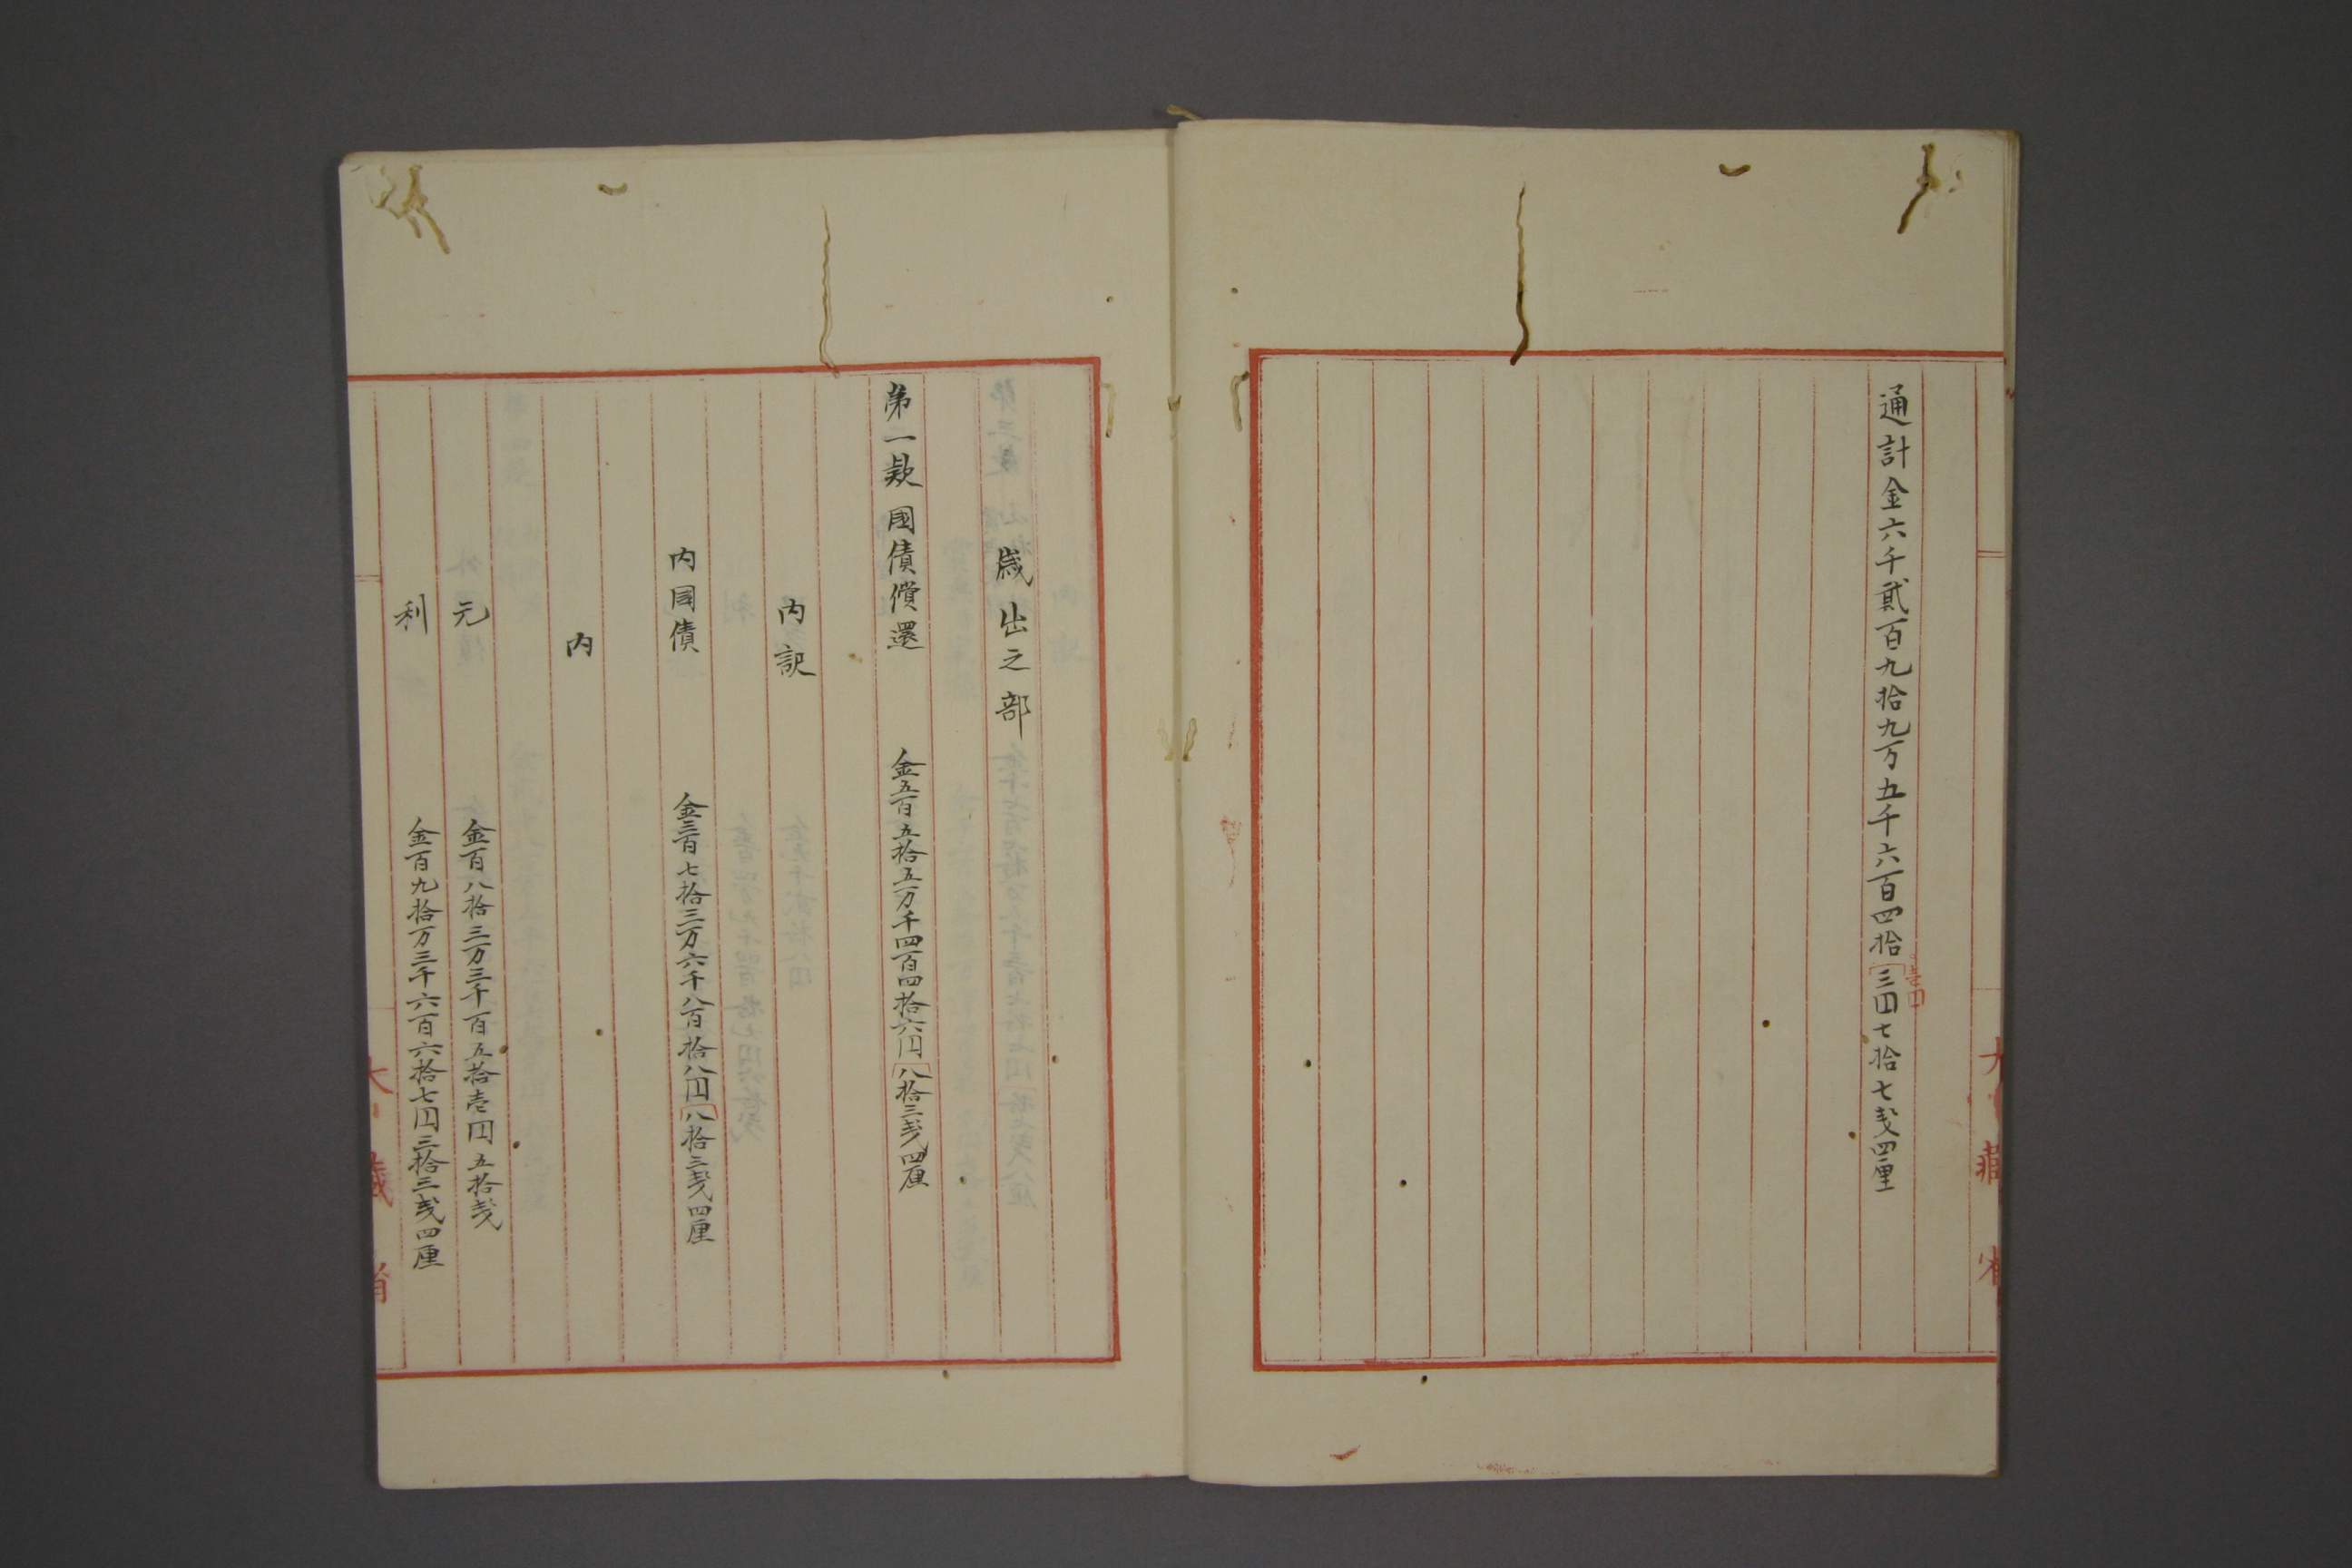 通計金六千貳百九拾九万五千六百四拾三円七拾七戋四厘
大藏省
歳出之部
第一款 國債償還 金五百五拾五万千四百四拾六円八拾三戋四厘
内訳
内国債 金三百七拾三万六千八百拾八円八拾三戋四厘
内
元 金百八拾三万三千百五拾壱円五拾戋
利 金百九拾万三千六百六拾七円三拾三戋四厘
大藏省